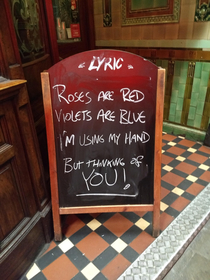 LYRIC
ROSES ARE RED
VIOLETS ARE BLUE
I'M USING MY HAND
BUT THINKING OF,
YOU!